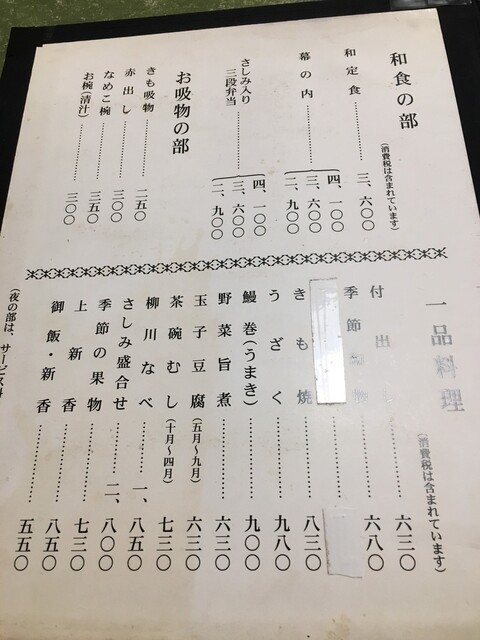 和食の部
(消費税は含まれています)
和定食……三、六〇〇
幕の内……四、一〇〇
三、六〇〇
二、九〇〇
さしみ入り
三段弁当……四、一〇〇
三、六〇〇
二、九〇〇
お吸物の部
きも吸物……二五〇
赤出し……三〇〇
なめこ椀……三五〇
お椀(清汁)……三〇〇
一品料理
(消費税は含まれています)
付出……六三〇
季節……六八〇
きも焼……八三〇
うざく……九八〇
鰻巻(うまき)……九〇〇
野菜旨煮……六三〇
玉子豆腐(五月〜九月)……六三〇
茶碗むし(十月〜四月)……七三〇
柳川なべ……一、八五〇
さしみ盛合せ……二、八〇〇
季節の果物……七三〇
上新香……八五〇
御飯・新香……五五〇
(夜の部は、サービス料